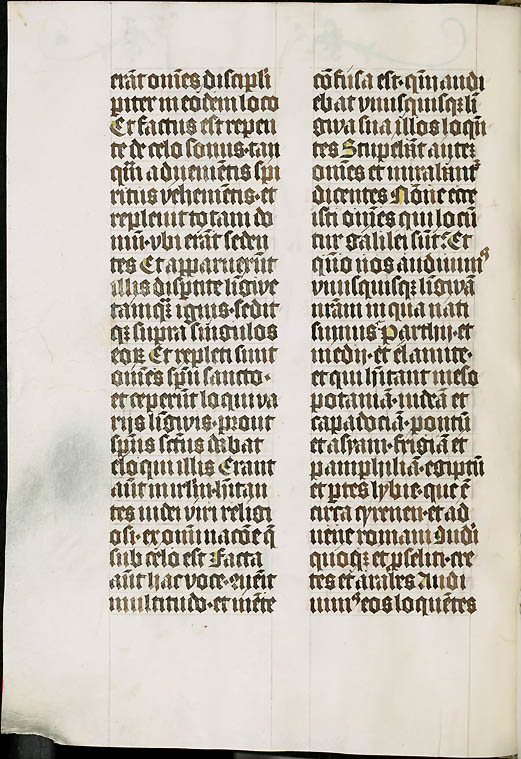 erāt om̄es discipli
pariter in eodem loco
Et factus est repen
te de celo sonus·tan
qȝ adueniētis spi
ritus vehemētis·et
repleuit totam do
mū·vbi erāt seden
tes Et apparuerūt
illis disꝑtite ligwe
tāmqȝ ignis·sedit
qȝ supra singulos
eoꝝ Et repleti sunt
om̄es spū sancto·
et ceperūt loqui va
rijs līgwis·prout
spūs sctūs dabat
eloqui illis Erant
aūt in irlm̄·hītan
tes iudei viri religi
osi·ex omni nacōe q̄
sub celo est Facta
aūt hac voce·ꝯuēit
multitudo·et mēte
cōfusa est·qm̄ audi
ebat vnusquisqȝ li
gwa sua illos loquē
tes Stupebāt autē
om̄es et mirabant᷑
dicentes Nōne ecce
isti om̄es qui locū
tur galilei sūt? Et
quō nos audiuim᷒
vnusquisqȝ ligwā
nrām in qua nati
sumus Parthi·et
medij·et elamite·
et qui hītant meso
potaniā·iudeā et
capadociā·pontū
et asyam·frigiā et
pamphiliā·egiptū
et ptēs lybie·que ē
circa cyrenen·et ad
uene romani Iudi
quoqȝ et ꝓseliti·cre
tes et arabes Audi
uim᷒ eos loquētes